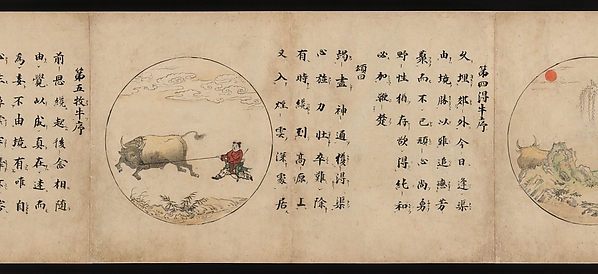 第四得牛序
久埋郊外今日逢渠
由境勝以難追戀芳
叢而不已頑心尚勇
野性猶存欲得純和
必加鞭楚
頌曰
竭盡神通獲得渠
心強力壯卒難除
有時纔到高原上
又入煙雲深處居
第五牧牛序
前思纔起後念相隨
由覺以成真在迷而
為妄不由境有唯自